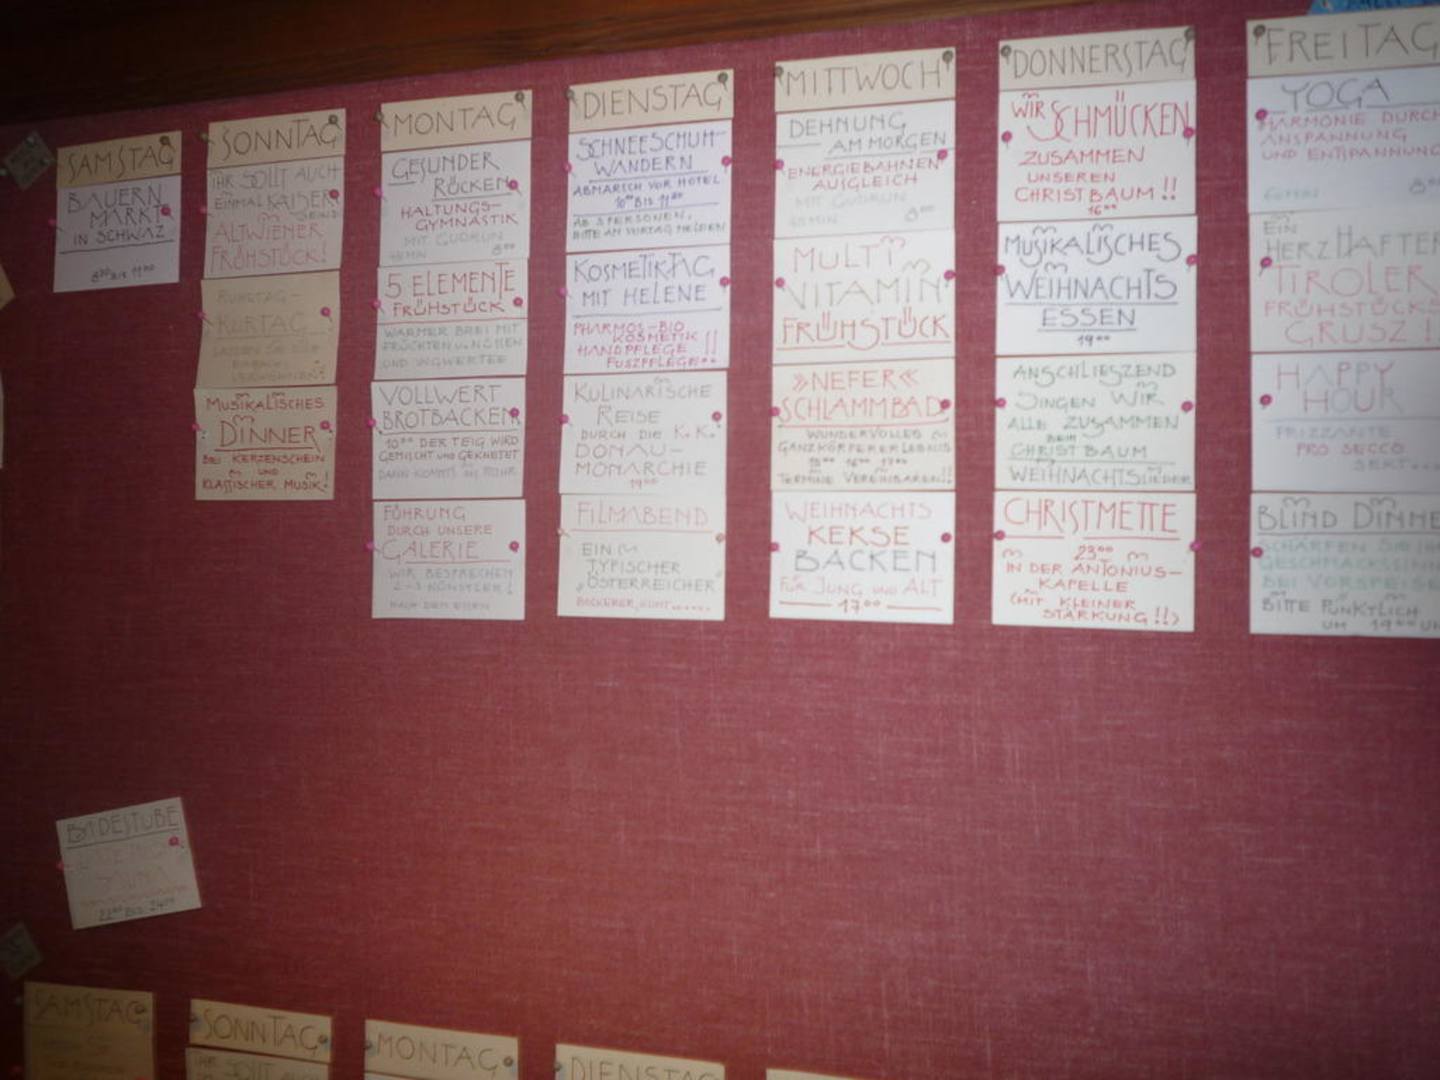 SAMSTAG
BAUERN
MARKT
IN SCHWAZ
8³⁰ BIS 11⁰⁰
SONNTAG
IHR SOLLT AUCH
EINMAL KAISER
SEIND
ALTWIENER
FRÜHSTÜCK!
RUHETAG-
KURTAG
MUSIKALISCHES
DINNER
BEI KERZENSCHEIN
UND
KLASSISCHER MUSIK!
MONTAG
GESUNDER
RÜCKEN
HALTUNGS-
GYMNASTIK
MIT GUDRUN
45MIN 8⁰⁰
5 ELEMENTE
FRÜHSTÜCK
WARMER BREI MIT
FRÜCHTEN U. NÜSSEN
UND INGWERTEE
VOLLWERT
BROTBACKEN
10⁰⁰ DER TEIG WIRD
GEMISCHT UND GEKNETET
DANN KOMMTS INS ROHR
FÜHRUNG
DURCH UNSERE
GALERIE
WIR BESPRECHEN
2-3 KÜNSTLER!
NACH DEM ESSEN
DIENSTAG
SCHNEESCHUH-
WANDERN
ABMARSCH VOR HOTEL
10⁰⁰ BIS 11³⁰
AB 3 PERSONEN,
BITTE AM VORTAG MELDEN
KOSMETIKTAG
MIT HELENE
PHARMOS-BIO
KOSMETIK
HANDPFLEGE !!
FUSZPFLEGE
KULINARISCHE
REISE
DURCH DIE K.K.
DONAU-
MONARCHIE
19⁰⁰
FILMABEND
EIN
TYPISCHER
„ÖSTERREICHER"
MITTWOCH
DEHNUNG
AM MORGEN
ENERGIEBAHNEN
AUSGLEICH
MIT GUDRUN
45MIN 8⁰⁰
MULTI
VITAMIN
FRÜHSTÜCK
»NEFER«
SCHLAMMBAD
WUNDERVOLLES
GANZKÖRPERERLEBNIS
15⁰⁰ 16⁰⁰ 17⁰⁰
TERMINE VEREINBAREN!!
WEIHNACHTS
KEKSE
BACKEN
FÜR JUNG UND ALT
17⁰⁰
DONNERSTAG
WIR SCHMÜCKEN
ZUSAMMEN
UNSEREN
CHRISTBAUM!!
16⁰⁰
MUSIKALISCHES
WEIHNACHTS
ESSEN
19⁰⁰
ANSCHLIESZEND
SINGEN WIR
ALLE ZUSAMMEN
BEIM
CHRISTBAUM
WEIHNACHTSLIEDER
CHRISTMETTE
23⁰⁰
IN DER ANTONIUS-
KAPELLE
(MIT KLEINER
STÄRKUNG!!)
FREITAG
YOGA
HARMONIE DURCH
ANSPANNUNG
UND ENTSPANNUNG
EIN
HERZHAFTER
TIROLER
FRÜHSTÜCKS
GRUSZ!
HAPPY
HOUR
FRIZZANTE
PRO SECCO
SEKT....
BLIND DINNE
SCHÄRFEN SIE IH
GESCHMACKSSINN
BEI VORSPEISE
BITTE PÜNKTLICH
UM 19⁰⁰ U
BADESTUBE
SAUNA
22⁰⁰ BIS 24⁰⁰
SAMSTAG
SONNTAG
IHR SOLLT AUCH
MONTAG
DIENSTAG